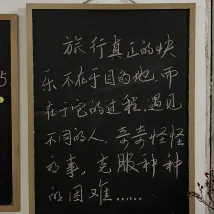 旅行真正的快
乐不在于目的地,而
在于它的过程,遇见
不同的人,奇奇怪怪
的事,克服种种
的困难......
5